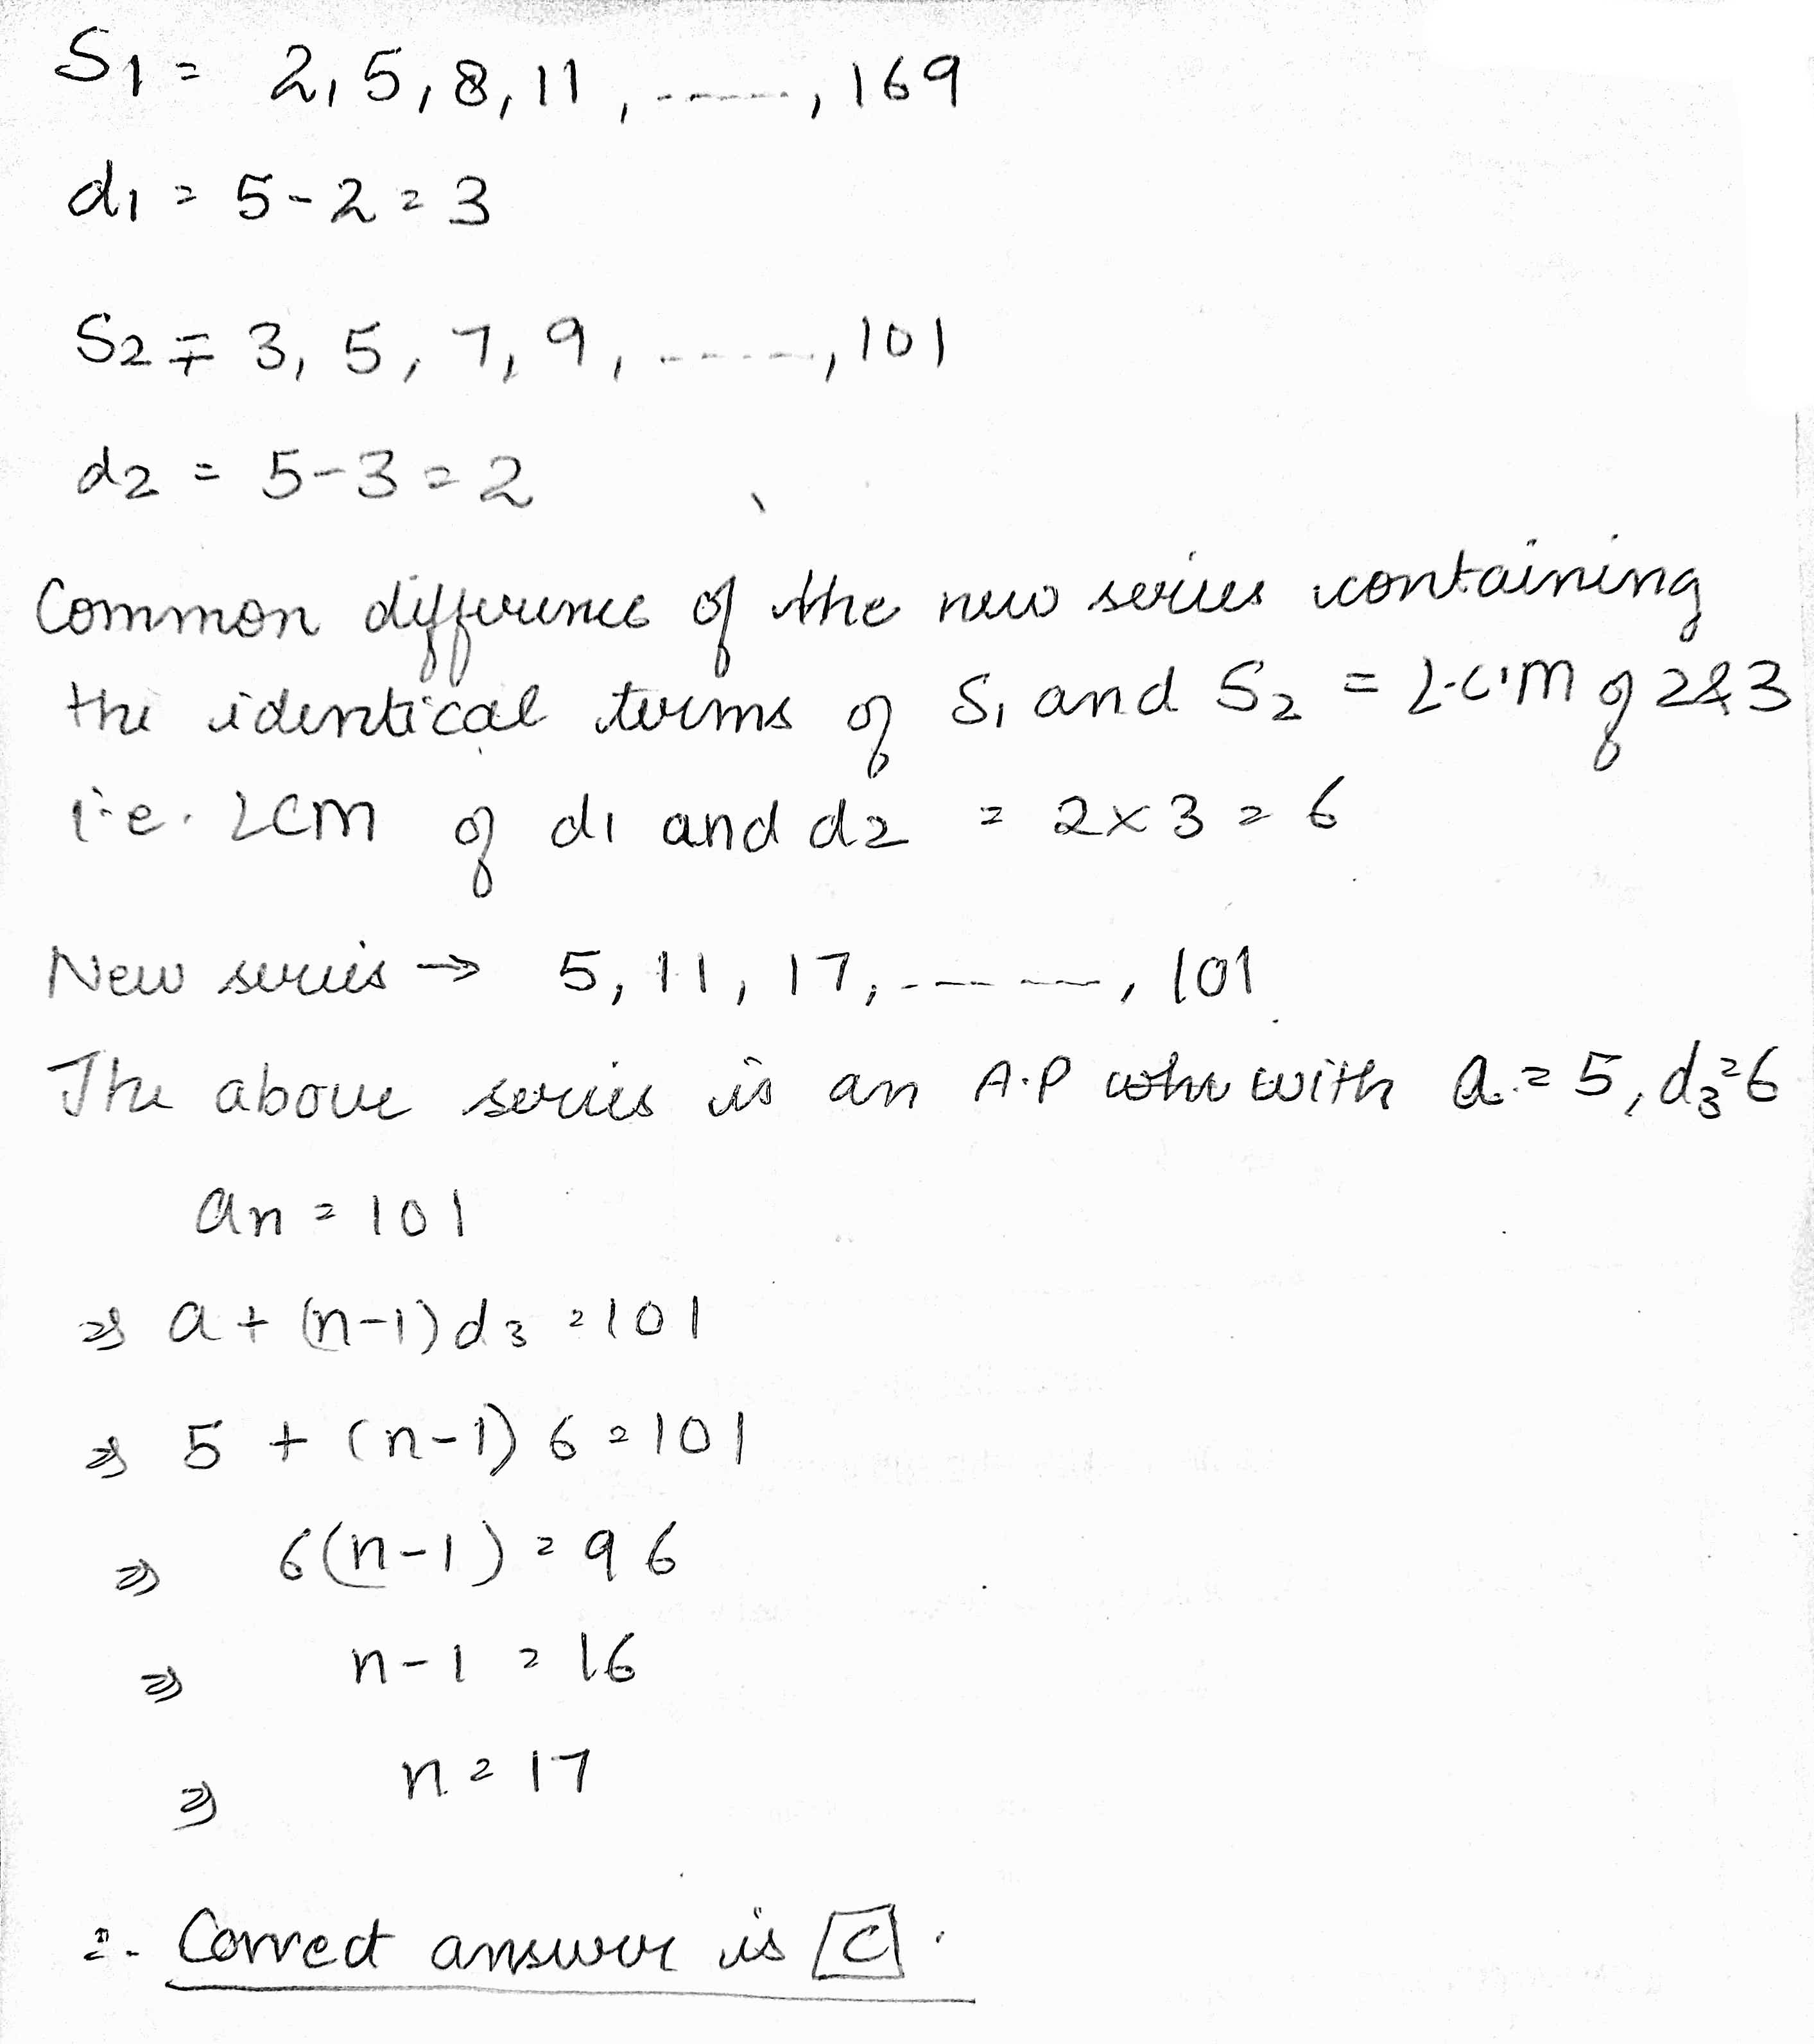 S1 = 2, 5, 8, 11, -----, 169
d1 = 5-2 = 3
S2 = 3, 5, 7, 9, -----, 101
d2 = 5-3 = 2
Common difference of the new series containing
the identical terms of S1 and S2 = L.C.M of 2&3
i.e. LCM of d1 and d2 = 2×3 = 6
New series → 5, 11, 17, -----, 101
The above series is an A.P with a = 5, d3=6
an = 101
⇒ a + (n-1)d3 = 101
⇒ 5 + (n-1) 6 = 101
⇒ 6(n-1) = 96
⇒ n-1 = 16
⇒ n = 17
∴ Correct answer is C.